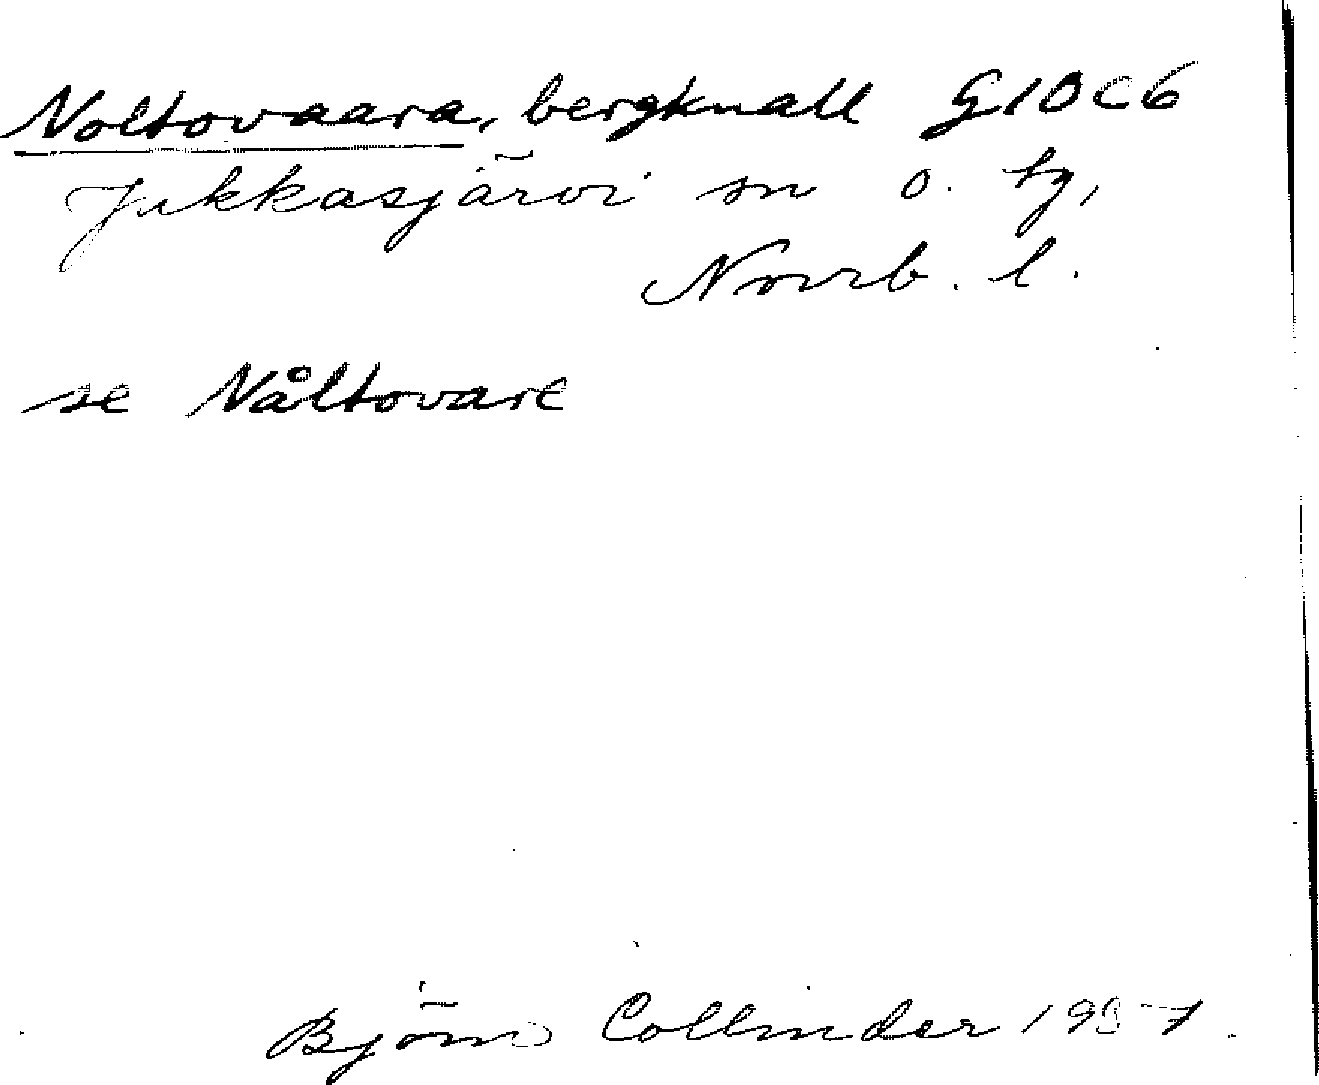 Noltovaara, bergknall G10C6
Jukkasjärvi sn o. tg,
Norrb. l.
se Nåltovare
Björn Collinder